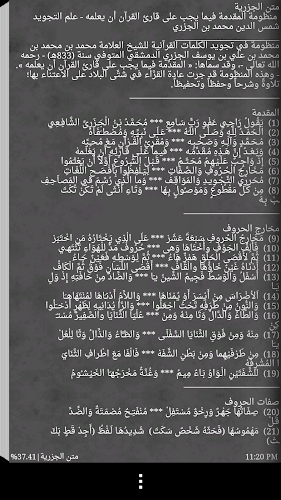 متن الجزرية
منظومة المقدمة فيما يجب على قارئ القرآن أن يعلمه - علم التجويد
شمس الدين محمد بن الجزري
منظومة في تجويد الكلمات القرآنية للشيخ العلامة محمد بن محمد بن
محمد بن علي بن يوسف الجزري الدمشقي المتوفى سنة (833هـ) - رحمه
الله تعالى -، وقد سماها: « المقدمة فيما يجب على قارئ القرآن أن يعلمه ».
- وهذه المنظومة قد جرت عادة القراء في شتى البلاد على الاعتناء بها؛
تلاوة وشرحا وحفظا وتحفيظا.
المقدمة
(1) يَقُولُ رَاجِي عَفْوِ رَبٍّ سَامِعِ *** مُحَمَّدُ بْنُ الْجَزَرِيِّ الشَّافِعِي
(2) الْحَمْدُ لِلَّهِ وَصَلَّى اللَّهُ *** عَلَى نَبِيِّهِ وَمُصْطَفَاهُ
(3) مُحَمَّدٍ وَآلِهِ وَصَحْبِهِ *** وَمُقْرِئِ الْقُرْآنِ مَعْ مُحِبِّهِ
(4) وَبَعْدُ إِنَّ هَذِهِ مُقَدِّمَهْ *** فِيمَا عَلَى قَارِئِهِ أَنْ يَعْلَمَهْ
(5) إِذْ وَاجِبٌ عَلَيْهِمُ مُحَتَّمُ *** قَبْلَ الشُّرُوعِ أَوَّلاً أَنْ يَعْلَمُوا
(6) مَخَارِجَ الْحُرُوفِ وَالصِّفَاتِ *** لِيَلْفِظُوا بِأَفْصَحِ اللُّغَاتِ
(7) مُحَرِّرِي التَّجْوِيدِ وَالْمَوَاقِفِ *** وَمَا الَّذِي رُسِمَ فِي الْمَصَاحِفِ
(8) مِنْ كُلِّ مَقْطُوعٍ وَمَوْصُولٍ بِهَا *** وَتَاءِ أُنْثَى لَمْ تَكُنْ تُكْتَ
بْ بِهَ
مخارج الحروف
(9) مَخَارِجُ الْحُرُوفِ سَبْعَةَ عَشَرْ *** عَلَى الَّذِي يَخْتَارُهُ مَنِ اخْتَبَرْ
(10) فَأَلِفُ الْجَوْفِ وَأُخْتَاهَا وَهِي *** حُرُوفُ مَدٍّ لِلْهَوَاءِ تَنْتَهِي
(11) ثُمَّ لأَقْصَى الْحَلْقِ هَمْزٌ هَاءُ *** ثُمَّ لِوَسْطِهِ فَعَيْنٌ حَاءُ
(12) أَدْنَاهُ غَيْنٌ خَاؤُهَا وَالْقَافُ *** أَقْصَى اللِّسَانِ فَوْقُ ثُمَّ الْكَافُ
(13) أَسْفَلُ وَالْوَسْطُ فَجِيمُ الشِّينُ يَا *** وَالضَّادُ مِنْ حَافَتِهِ إِذْ وَلِ
يَا
(14) الأَضْرَاسَ مِنْ أَيْسَرَ أَوْ يُمْنَاهَا *** وَاللاَّمُ أَدْنَاهَا لِمُنْتَهَاهَا
(15) وَالنُّونُ مِنْ طَرَفِهِ تَحْتُ اجْعَلُوا *** وَالرَّا يُدَانِيهِ لِظَهْرٍ أَدْخَلُوا
(16) وَالطَّاءُ وَالدَّالُ وَتَا مِنْهُ وَمِنْ *** عُلْيَا الثَّنَايَا وَالصَّفِيرُ مُسْتَ
كِنّ
(17) مِنْهُ وَمِنْ فَوْقِ الثَّنَايَا السُّفْلَى *** وَالظَّاءُ وَالذَّالُ وَثَا لِلْعُلْ
يَا
(18) مِنْ طَرَفَيْهِمَا وَمِنْ بَطْنِ الشَّفَهْ *** فَالْفَا مَعَ اطْرَافِ الثَّنَايَ
ا الْمُشْرِفَهْ
(19) لِلشَّفَتَيْنِ الْوَاوُ بَاءٌ مِيمُ *** وَغُنَّةٌ مَخْرَجُهَا الْخَيْشُومُ
صفات الحروف
(20) صِفَاتُهَا جَهْرٌ وَرِخْوٌ مُسْتَفِلْ *** مُنْفَتِحٌ مُصْمَتَةٌ وَالضِّدَّ
قُلْ
(21) مَهْمُوسُهَا (فَحَثَّهُ شَخْصٌ سَكَتَ) شَدِيدُهَا لَفْظُ (أَجِدْ قَطٍ بَكَ
تْ)
%37.41 | متن الجزرية
11:20 PM